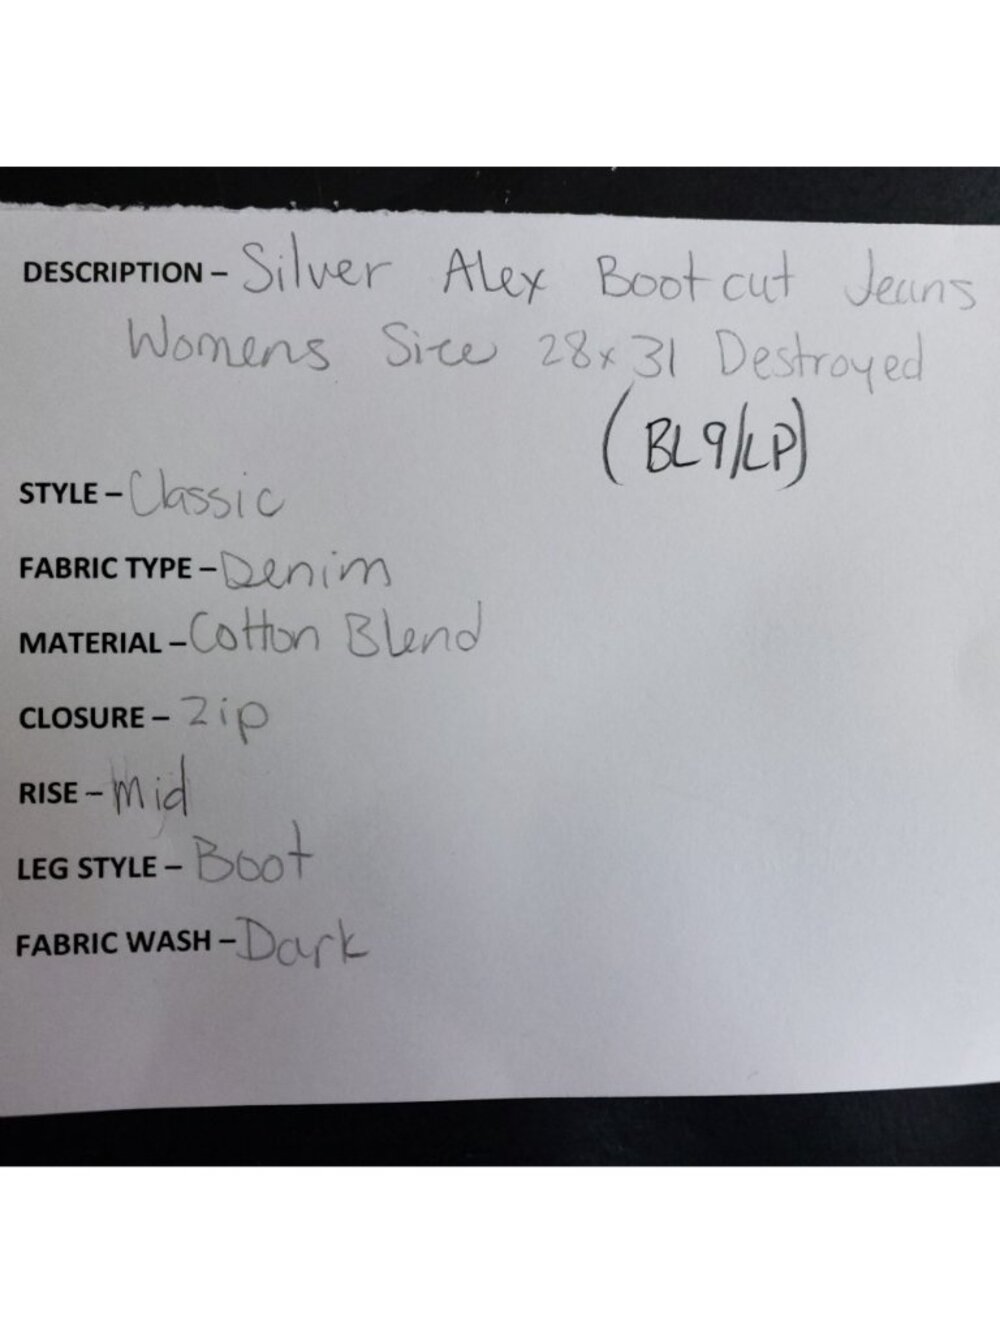 DESCRIPTION – Silver Alex Bootcut Jeans
Womens Size 28x31 Destroyed
(BL9/LP)
STYLE – Classic
FABRIC TYPE – Denim
MATERIAL – Cotton Blend
CLOSURE – Zip
RISE – Mid
LEG STYLE – Boot
FABRIC WASH – Dark